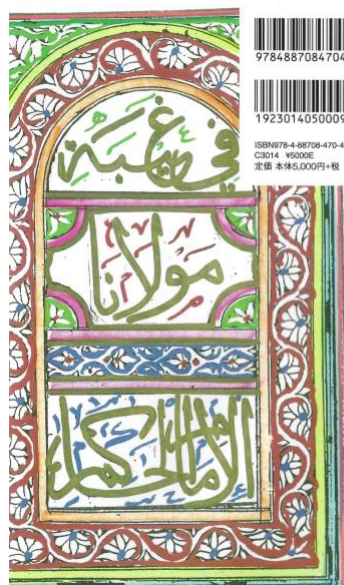 9784887084704
1923014050009
ISBN978-4-88708-470-4
C3014 ¥5000E
定価 本体5,000円+税
في غيبة
مولانا
الإمام الحاكم